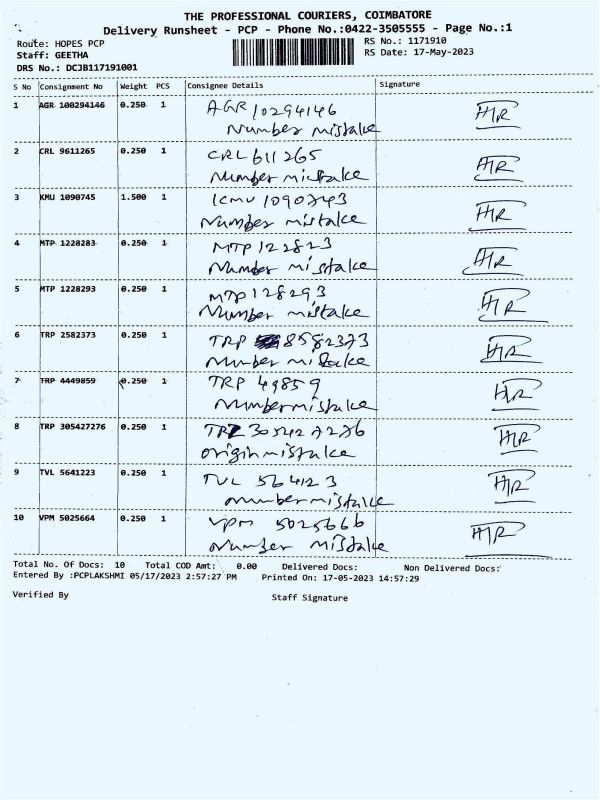 THE PROFESSIONAL COURIERS, COIMBATORE
Delivery Runsheet - PCP - Phone No.:0422-3505555 - Page No.:1
Route: HOPES PCP RS No.: 1171910
Staff: GEETHA RS Date: 17-May-2023
DRS No.: DCJB117191001
S No Consignment No Weight PCS Consignee Details Signature
1 AGR 100294146 0.250 1 AGR 10294146
Number mistake
2 CRL 9611265 0.250 1 CRL 611265
Number mistake
3 KMU 1090745 1.500 1 KMU 1090743
Number mistake
4 MTP 1228283 0.250 1 MTP 122823
Number mistake
5 MTP 1228293 0.250 1 MTP 128293
Number mistake
6 TRP 2582373 0.250 1 TRP 8582373
Number mistake
7 TRP 4449859 0.250 1 TRP 49859
Number mistake
8 TRP 305427276 0.250 1 TRZ 305427276
origin mistake
9 TVL 5641223 0.250 1 TVL 564123
number mistake
10 VPM 5025664 0.250 1 VPM 5025666
Number mistake
Total No. Of Docs: 10 Total COD Amt: 0.00 Delivered Docs: Non Delivered Docs:
Entered By :PCPLAKSHMI 05/17/2023 2:57:27 PM Printed On: 17-05-2023 14:57:29
Verified By Staff Signature